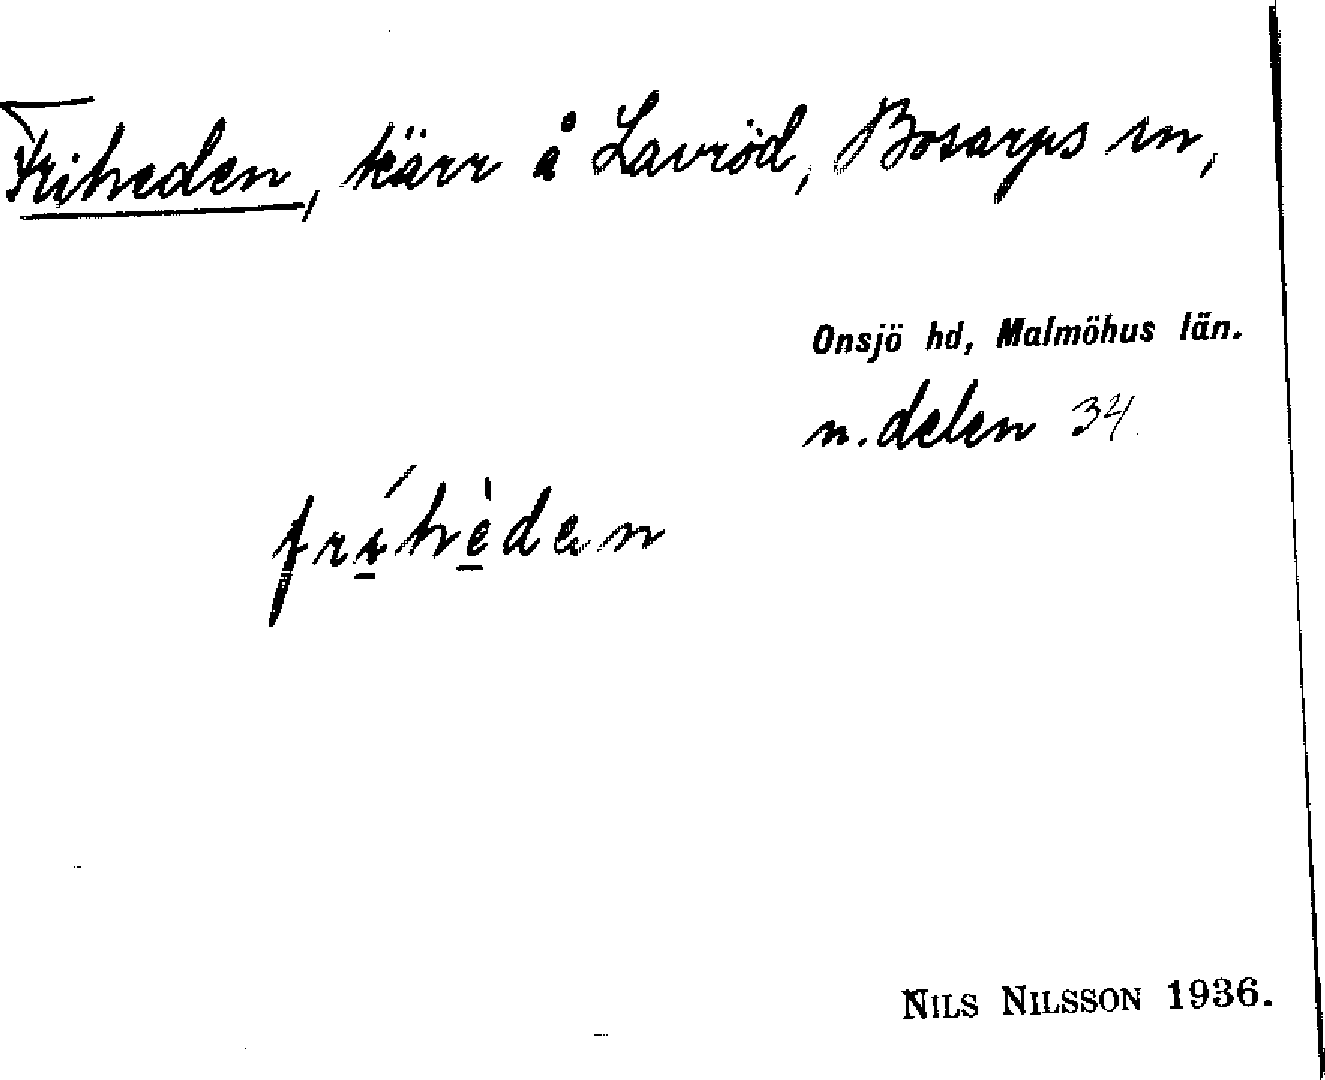 Friheden, kärr å Lavröd, Bosarps sn,
Onsjö hd, Malmöhus län.
n. delen 34
frí̱hè̱dən
NILS NILSSON 1936.